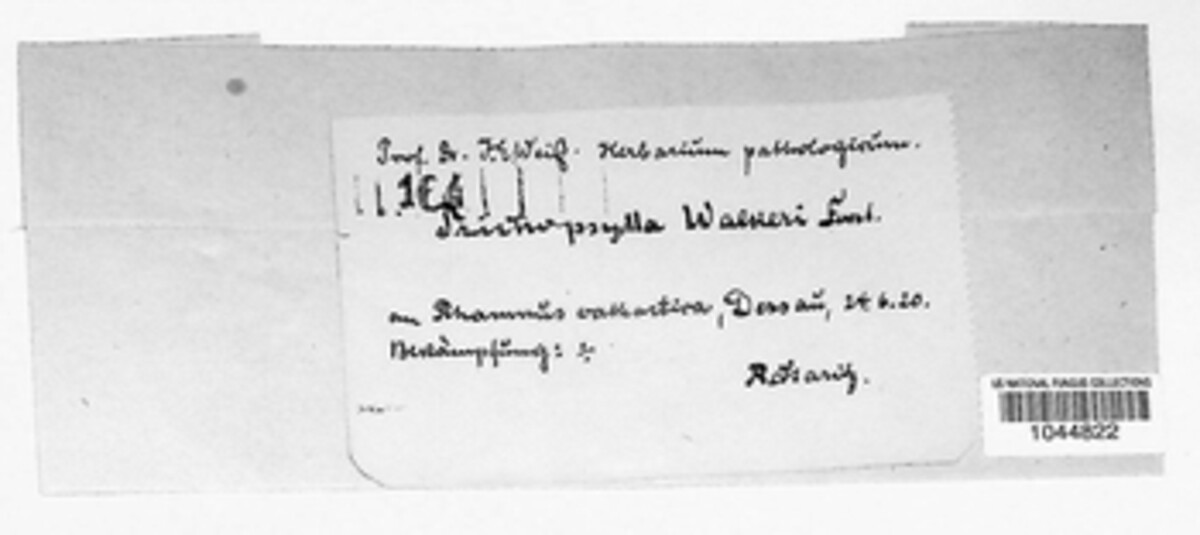 Prof. Dr. J.E. Weiß. Herbarium pathologicum.
Trichopsylla Walkeri Först.
an Rhamnus cathartica, Dessau, 24.6.20.
Bekämpfung:
R. Staritz.
US NATIONAL FUNGUS COLLECTIONS
1044822